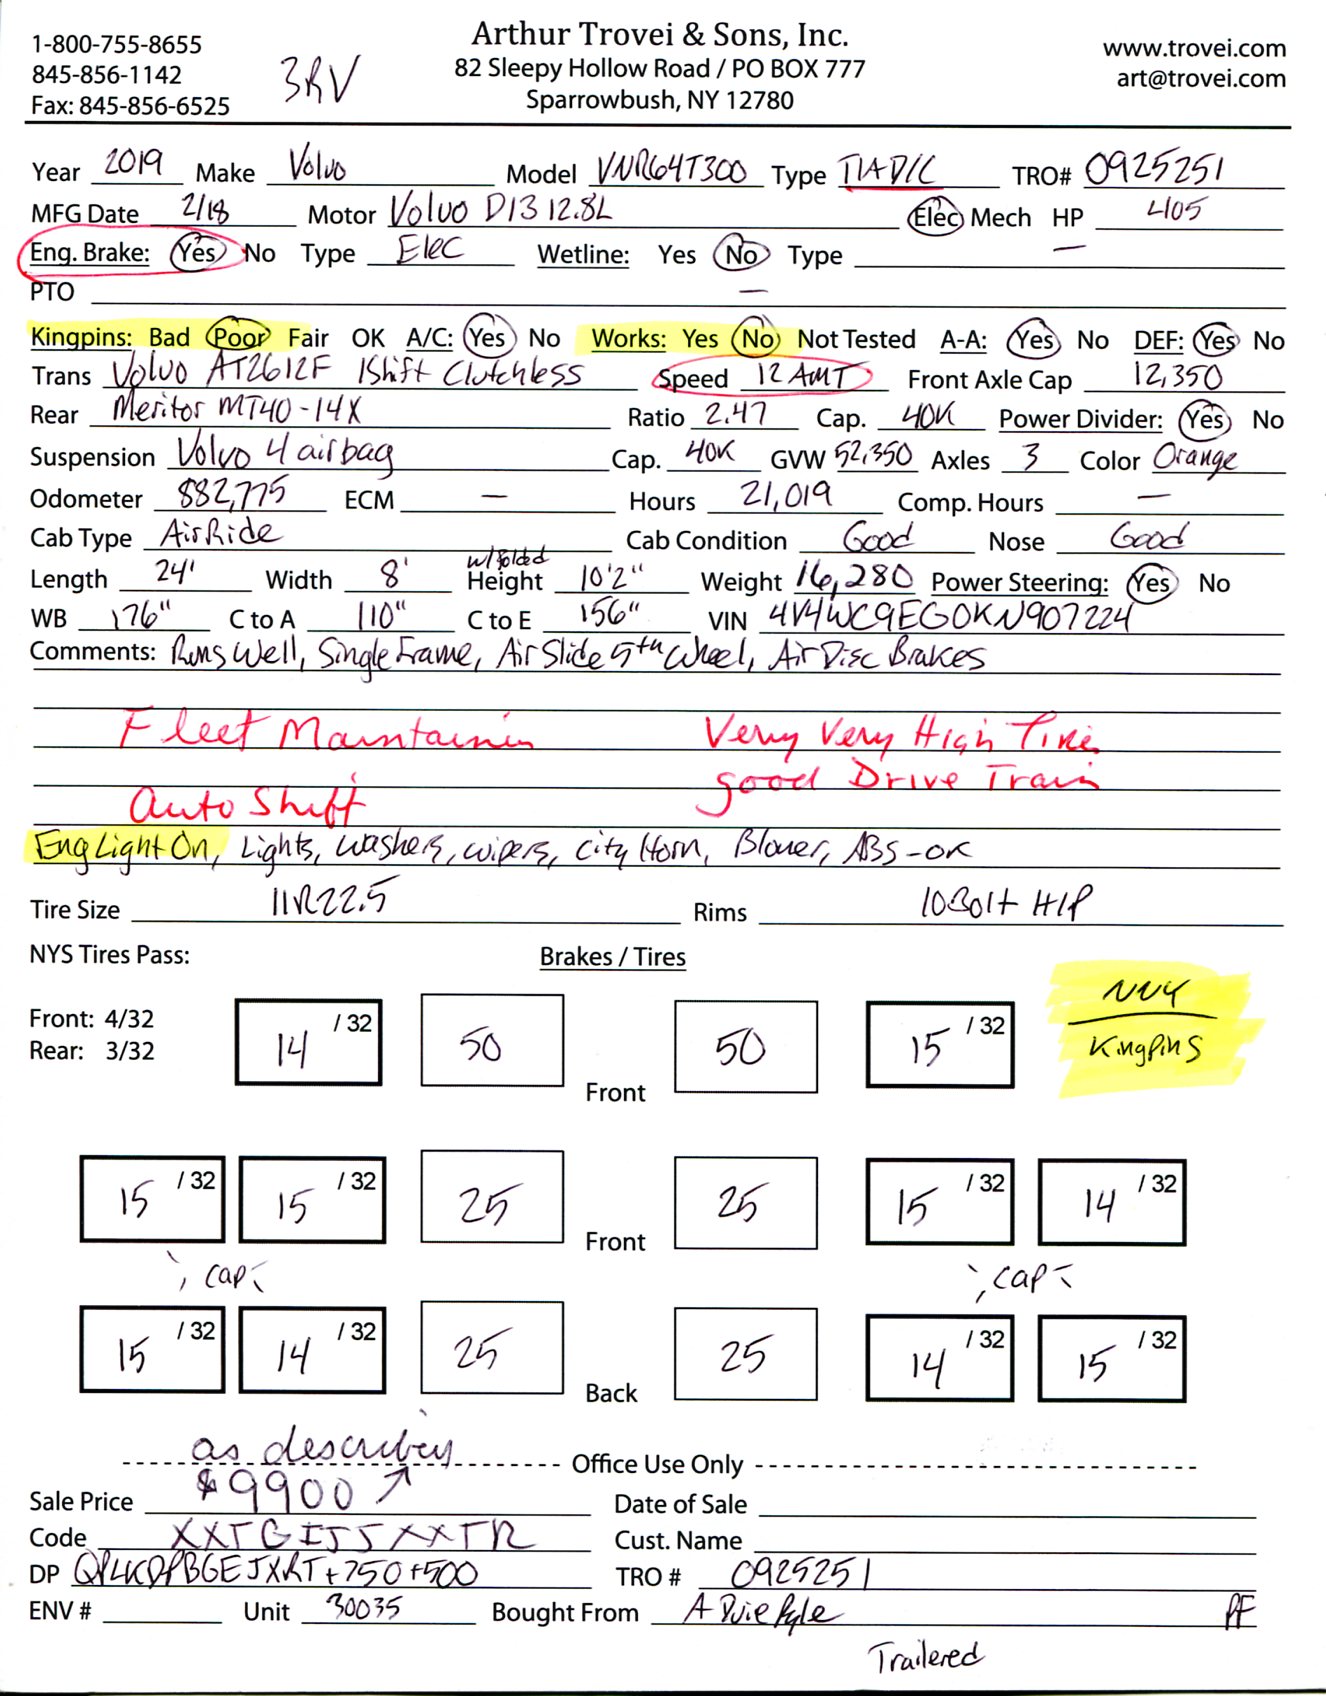 1-800-755-8655
845-856-1142
Fax: 845-856-6525
3RV
Arthur Trovei & Sons, Inc.
82 Sleepy Hollow Road / PO BOX 777
Sparrowbush, NY 12780
www.trovei.com
art@trovei.com
Year 2019 Make Volvo Model VNR64T300 Type T/A D/C TRO# 0925251
MFG Date 2/18 Motor Volvo D13 12.8L Elec Mech HP 405
Eng. Brake: Yes No Type Elec Wetline: Yes No Type —
PTO —
Kingpins: Bad Poor Fair OK A/C: Yes No Works: Yes No Not Tested A-A: Yes No DEF: Yes No
Trans Volvo AT2612F IShift Clutchless Speed 12 AMT Front Axle Cap 12,350
Rear Meritor MT40-14X Ratio 2.47 Cap. 40K Power Divider: Yes No
Suspension Volvo 4 airbag Cap. 40K GVW 52,350 Axles 3 Color Orange
Odometer 882,775 ECM — Hours 21,019 Comp. Hours —
Cab Type AirRide Cab Condition Good Nose Good
Length 24' Width 8' w/folded Height 10'2" Weight 16,280 Power Steering: Yes No
WB 176" C to A 110" C to E 156" VIN 4V4WC9EG0KN907224
Comments: Runs Well, Single Frame, Air Slide 5th Wheel, Air Disc Brakes
Fleet Maintained Very Very High Tire
good Drive Train
Auto Shift
Eng Light On, Lights, washers, wipers, City Horn, Blower, ABS-OK
Tire Size 11R22.5 Rims 10Bolt H/P
NYS Tires Pass: Brakes / Tires
Front: 4/32
Rear: 3/32
14 /32 50 Front 50 15 /32
NNY
Kingpins
15 /32 15 /32 25 Front 25 15 /32 14 /32
Cap Cap
15 /32 14 /32 25 Back 25 14 /32 15 /32
as describing
Office Use Only
Sale Price $9900 Date of Sale
Code XXTGIJJXXTR Cust. Name
DP QPLKDPBGEJXRT+750+500 TRO # 0925251
ENV # Unit 30035 Bought From A Duie Pyle PF
Trailered